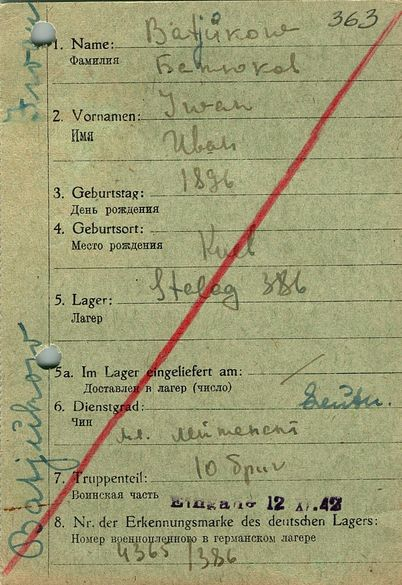 363
1. Name: Batjukow
Фамилия Батюков
2. Vornamen: Iwan
Имя Иван
3. Geburtstag: 1896
День рождения
4. Geburtsort:
Место рождения Киев
Stalag 386
5. Lager:
Лагерь
5a. Im Lager eingeliefert am:
Доставлен в лагерь (число)
6. Dienstgrad:
Чин мл. лейтенант
7. Truppenteil: 10 бриг
Воинская часть Eingang 12 XI. 42
8. Nr. der Erkennungsmarke des deutschen Lagers:
Номер военнопленного в германском лагере
4365/386
Batjukow